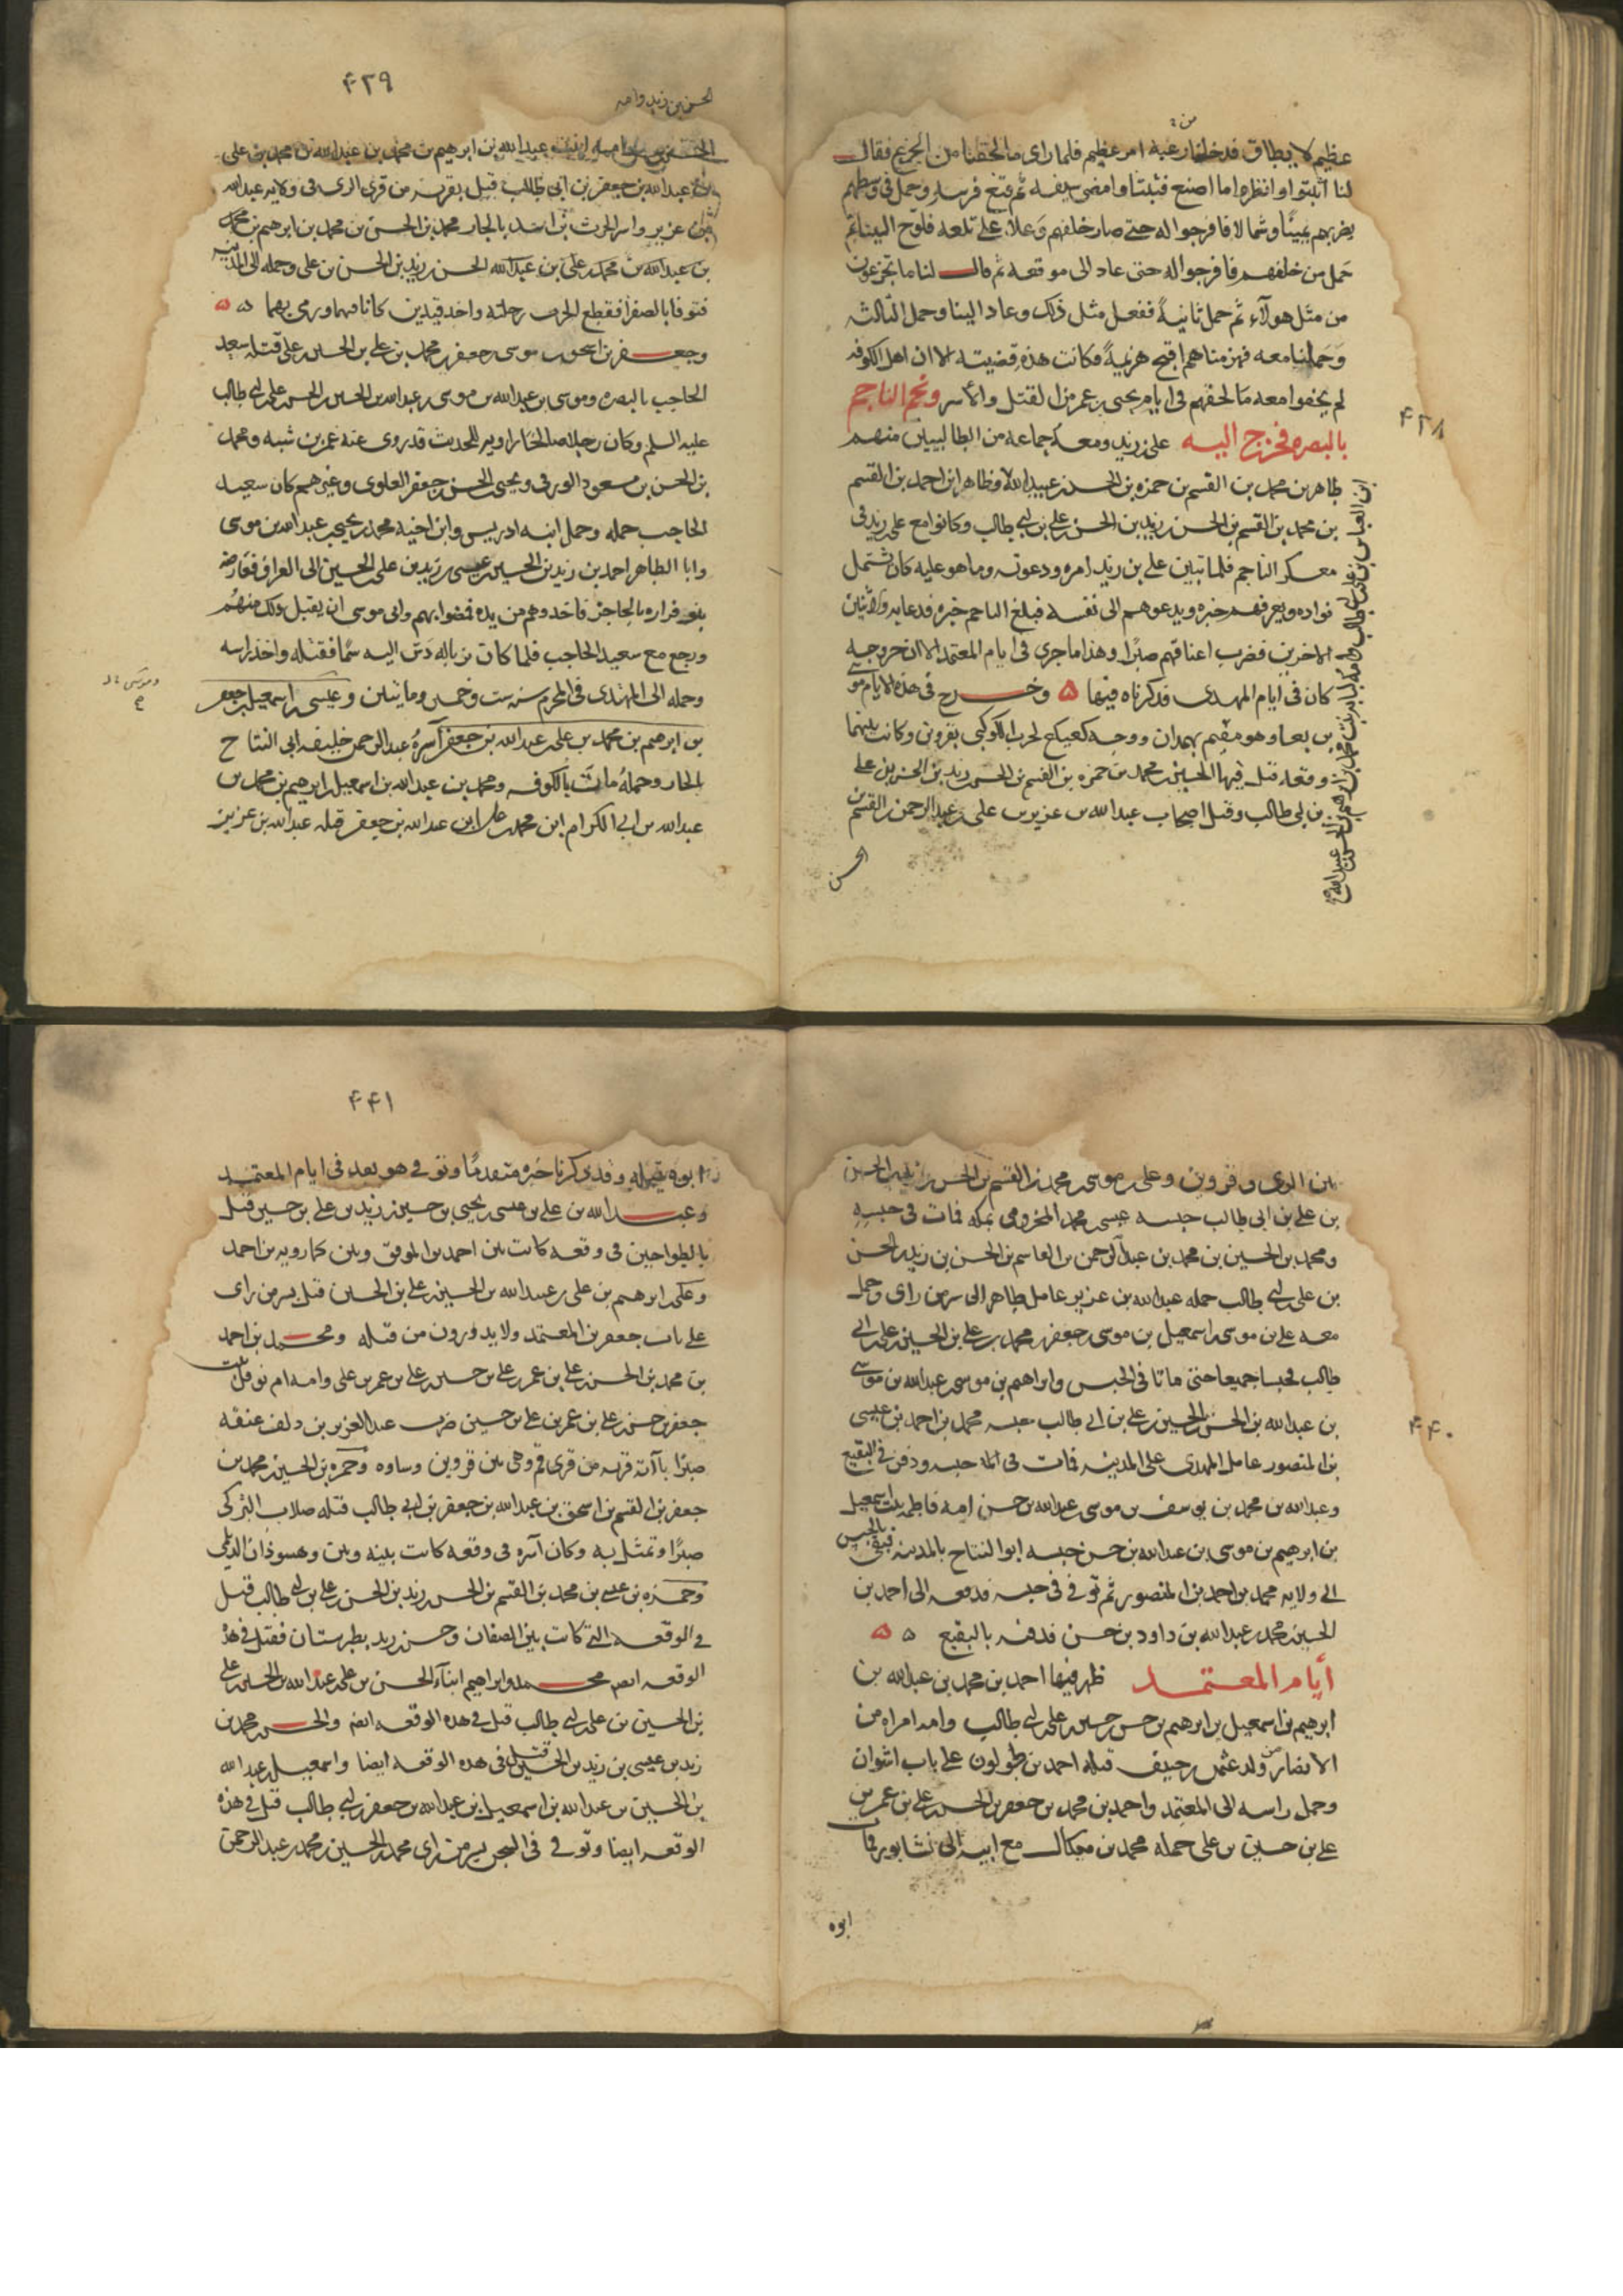 من
عظيم لا يطاق قد خلفا رعبة امر عظيم فلما راى ما لحقنا من الجزع فقال
لنا اثبتوا وانظروا ما اصنع فثبتنا وامضى سيفه ثم قنع فرسه وحمل فى وسطهم
يضربهم يمينًا وشمالا فافرجوا له حتى صار خلفهم وعلا على تلعة فلوح الينا ثم
حمل من خلفهم فافرجوا له حتى عاد الى موقفه ثم قال لنا ما تجزعون
من مثل هولآء ثم حمل ثانيةً ففعل مثل ذلك وعاد الينا وحمل الثالثه
وحملنا معه فهزمناهم اقبح هزيمةً وكانت هذه قضيته الا ان اهل الكوفه
لم يخفوا معه ما لحقهم فى ايام يحيى بن عمر من القتل والاسر ونجم الناجم
بالبصره فخرج اليه على بن زيد ومعه جماعه من الطالبيين منهم
طاهر بن محمد بن القسم بن حمزه بن الحسن بن عبيد الله وطاهر ابن احمد بن القسم
بن محمد بن القسم بن الحسن بن زيد بن الحسن بن على بن ابى طالب وكانوا مع على بن زيد فى
معسكر الناجم فلما تبين على بن زيد امره ودعوته وما هو عليه كان يشتمل
قواده ويعرفهم خبره ويدعوهم الى نفسه فبلغ الناجم خبره فدعا به والاثنين
الاخرين فضرب اعناقهم صبرًا وهذا ما جرى فى ايام المعتمد الا ان خروجه
كان فى ايام المهدى فذكرناه فيها ه وخرج فى هذه الايام موسى
بن بغا وهو مقيم بهمدان ووجه كعيكع لحرب الكوكبى بقزوين وكانت بينهما
وقعه قتل فيها الحسين بن محمد بن حمزه بن القسم بن الحسن بن زيد بن الحسن بن على
بن ابى طالب وقتل اصحاب عبد الله بن عزيز بن على بن عبد الرحمن بن القسم بن
الحسن
۴۳۸
۴۳۹
الحسن بن زيد وامه
بن عبد الله بن جعفر بن ابى طالب قتل بقرية من قرى الرى فى ولاية عبد الله
بن عزيز واسر الحرث بن اسد بالجار محمد بن الحسن بن محمد بن ابرهيم بن محمد
بن عبد الله بن محمد بن على بن عبد الله الحسن بن زيد بن الحسن بن على وحمله الى المدينه
فتوفا بالصفرا فقطع الحرث رجلته واخذ قيدين كانا فيهما ورمى بهما ه ه
وجعفر بن اسحق بن موسى بن جعفر بن محمد بن على بن الحسين بن على قتله سعيد
الحاجب بالبصره وموسى بن عبد الله بن موسى بن عبد الله بن الحسن بن الحسن بن على بن ابى طالب
عليه السلم وكان رجلا صالحًا راويه للحديث قد روى عنه عمر بن شبه ومحمد
بن الحسن بن مسعود الورقى ويحيى بن الحسن بن جعفر العلوى وغيرهم كان سعيد
الحاجب حمله وحمل ابنه ادريس وابن اخيه محمد بن يحيى بن عبد الله بن موسى
وابا الطاهر احمد بن زيد بن الحسين بن عيسى بن زيد بن على بن الحسين الى العراق فعارضه
بنو فزاره بالحاجز فاخذوهم من يده فمضوا بهم وابى موسى ان يقبل ذلك منهم
ورجع مع سعيد الحاجب فلما كان بزباله دس اليه سمًا فقتله واخذ راسه
وحمله الى المهتدى فى المحرم سنه ست وخمسين ومايتين وعيسى بن اسمعيل بن جعفر
بن ابرهيم بن محمد بن على بن عبد الله بن جعفر آسره عبد الرحمن خليفه ابى النتاح
بالجار وحمله مات بالكوفه ومحمد بن عبد الله بن اسمعيل بن ابرهيم بن محمد بن
عبد الله بن ابى الكرام ابن محمد بن على ابن عبد الله بن جعفر قتله عبد الله بن عزيز
بين الرى وقزوين وعلى بن موسى بن محمد بن القسم بن الحسن بن زيد بن الحسن
بن على بن ابى طالب حبسه عيسى بن محمد المخزومى بمكه فمات فى حبسه
ومحمد بن الحسين بن محمد بن عبد الرحمن بن القاسم بن الحسن بن زيد بن الحسن
بن على بن ابى طالب حمله عبد الله بن عزيز عامل طاهر الى سر من راى وحمل
معه على بن موسى بن اسمعيل بن موسى بن جعفر بن محمد بن على بن الحسين بن على بن ابى
طالب فحبسا جميعا حتى ماتا فى الحبس وابراهيم بن موسى بن عبد الله بن موسى
بن عبد الله بن الحسن بن الحسين بن على بن ابى طالب حبسه محمد بن احمد بن عيسى
بن المنصور عامل المهدى على المدينه فمات فى حبسه ودفن فى البقيع
وعبد الله بن محمد بن يوسف بن موسى بن عبد الله بن حسن امه فاطمه بنت اسمعيل
بن ابرهيم بن موسى بن عبد الله بن حسن حبسه ابو النتاح بالمدينه فبقى بالحبس
الى ولايه محمد بن احمد بن المنصور ثم توفى فى حبسه فدفعه الى احمد بن
الحسين بن محمد بن عبد الله بن داود بن حسن فدفنه بالبقيع ه ه
أيام المعتمد ظهر فيها احمد بن محمد بن عبد الله بن
ابرهيم بن اسمعيل بن ابرهيم بن حسن بن حسين بن على بن ابى طالب وامه امراه من
الانصار من ولد عثمن بن حنيف قتله احمد بن طولون على باب اثوان
وحمل راسه الى المعتمد واحمد بن محمد بن جعفر بن الحسن بن على بن عمر بن
على بن حسين بن على حمله محمد بن ميكال مع ابيه الى نشابور فمات
ابوه
۴۴۰
۴۴۱
ابوه قبله وقد ذكرنا خبره متقدمًا وتوفى هو بعد فى ايام المعتمد
وعبيد الله بن على بن عيسى بن يحيى بن حسين بن زيد بن على بن حسين قتل
بالطواحين فى وقعه كانت بين احمد بن الموفق وبين خمارويه بن احمد
وعلى بن ابرهيم بن على بن عبيد الله بن الحسين بن على بن الحسين قتل بسر من راى
على باب جعفر بن المعتمد ولا يدورون من قتله ومحمد بن احمد
بن محمد بن الحسن بن على بن عمر بن على بن حسين بن على بن عمر بن على وامه ام نوفل بنت
جعفر بن حسن بن على بن عمر بن على بن حسين ضرب عبد العزيز بن دلف عنقه
صبرًا بآنه قريه من قرى قم وهى بين قزوين وساوه وحمزه بن الحسين بن محمد بن
جعفر بن القسم بن اسحق بن عبد الله بن جعفر بن ابى طالب قتله صلاب التركى
صبرًا وتمثل به وكان آسره فى وقعه كانت بينه وبين وهسوذان الديلمى
وحمزه بن عيسى بن محمد بن القسم بن الحسن بن زيد بن الحسن بن على بن ابى طالب قتل
فى الوقعه التى كانت بين الصفار وحسن بن زيد بطبرستان فقتل فى هذه
الوقعه ايضا محمد وابراهيم ابنآء الحسن بن على بن عبد الله بن الحسين بن على
بن الحسين بن على بن ابى طالب قتل فى هذه الوقعه ايضا والحسن بن محمد بن
زيد بن عيسى بن زيد بن الحسين قتل فى هذه الوقعه ايضا واسمعيل بن عبد الله
بن الحسين بن عبد الله بن اسمعيل بن عبد الله بن جعفر بن ابى طالب قتل فى هذه
الوقعه ايضا وتوفى فى السجن بسر من راى محمد بن الحسين بن محمد بن عبد الرحمن